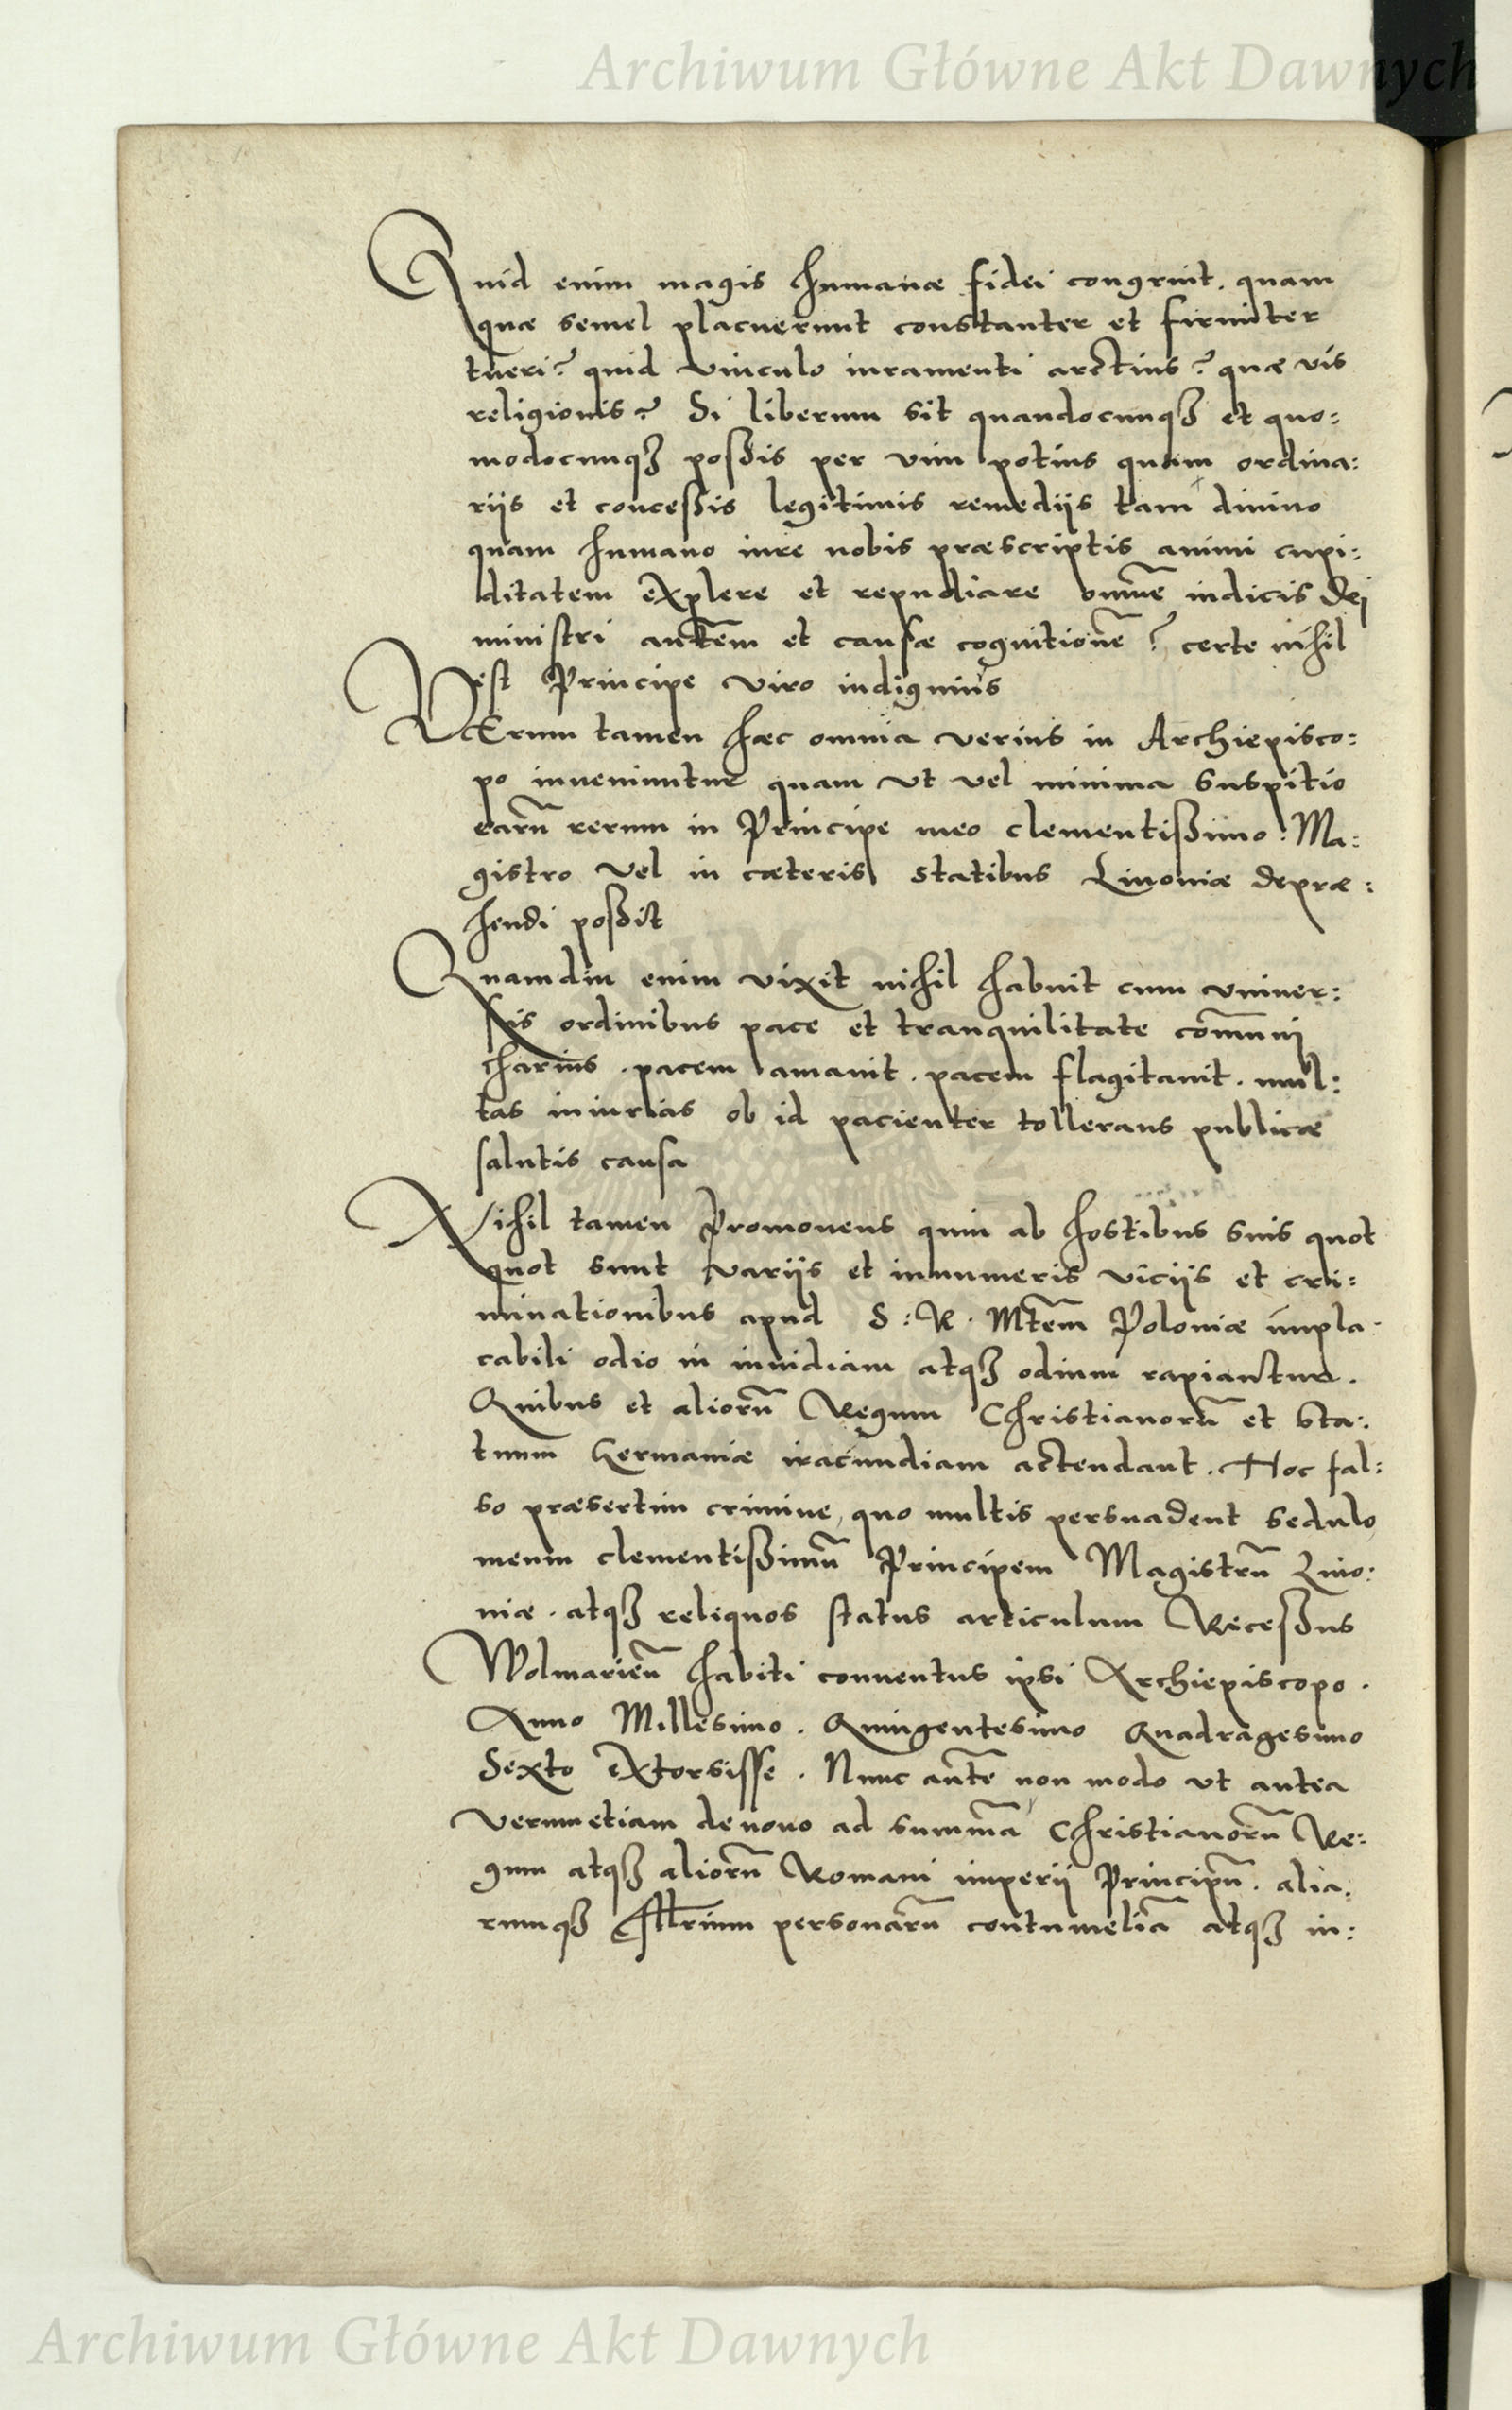 Archiwum Główne Akt Dawnych
Quid enim magis humanæ fidei congruit. quam
quæ semel placuerunt constanter et firmiter
tueri? quid vinculo iuramenti arctius? quæ vis
religionis? Si liberum sit quandocunqꝫ et quo:
modocunqꝫ poßis per vim potius quam ordina:
riis et conceßis legitimis remediis tam diuino
quam humano iure nobis præscriptis animi cupi:
ditatem explere et repudiare omnē iudicis Dei
ministri autem et causæ cognitionē? certe nihil
est Principe viro indignius
VErum tamen hæc omnia verius in Archiepisco:
po inueniuntur quam vt vel minima suspitio
earū rerum in Principe meo clementißimo: Ma:
gistro vel in cæteris statibus Liuoniæ depræ:
hendi poßit
Quamdiu enim vixit nihil habuit cum vniuer:
sis ordinibus pace et tranquilitate com̄uni
charius. pacem amauit. pacem flagitauit. mul:
tas iniurias ob id pacienter tollerans publicæ
salutis causa
Nihil tamen Promouens quin ab hostibus suis quot
quot sunt variis et innumeris viciis et cri:
minationibus apud S: R. Mtēm Poloniæ impla:
cabili odio in inuidiam atqꝫ odium rapiantur.
Quibus et aliorū Regum Christianorū et sta:
tuum Germaniæ iracundiam actendant. Hoc fal:
so præsertim crimine, quo multis persuadent sedulo
meum clementißimū Principem Magistrū Liuo:
niæ. atqꝫ reliquos status articulum Receßus
Wolmarieñ habiti conuentus ipsi Archiepiscopo.
Anno Millesimo. Quingentesimo Quadragesimo
Sexto extorsisse. Nunc autē non modo vt antea
verumetiam de nouo ad summā Christianorū Re:
gum atqꝫ aliorū Romani imperii Principū. alia:
rumqꝫ Illrium personarū contumeliā atqꝫ in:
Archiwum Główne Akt Dawnych